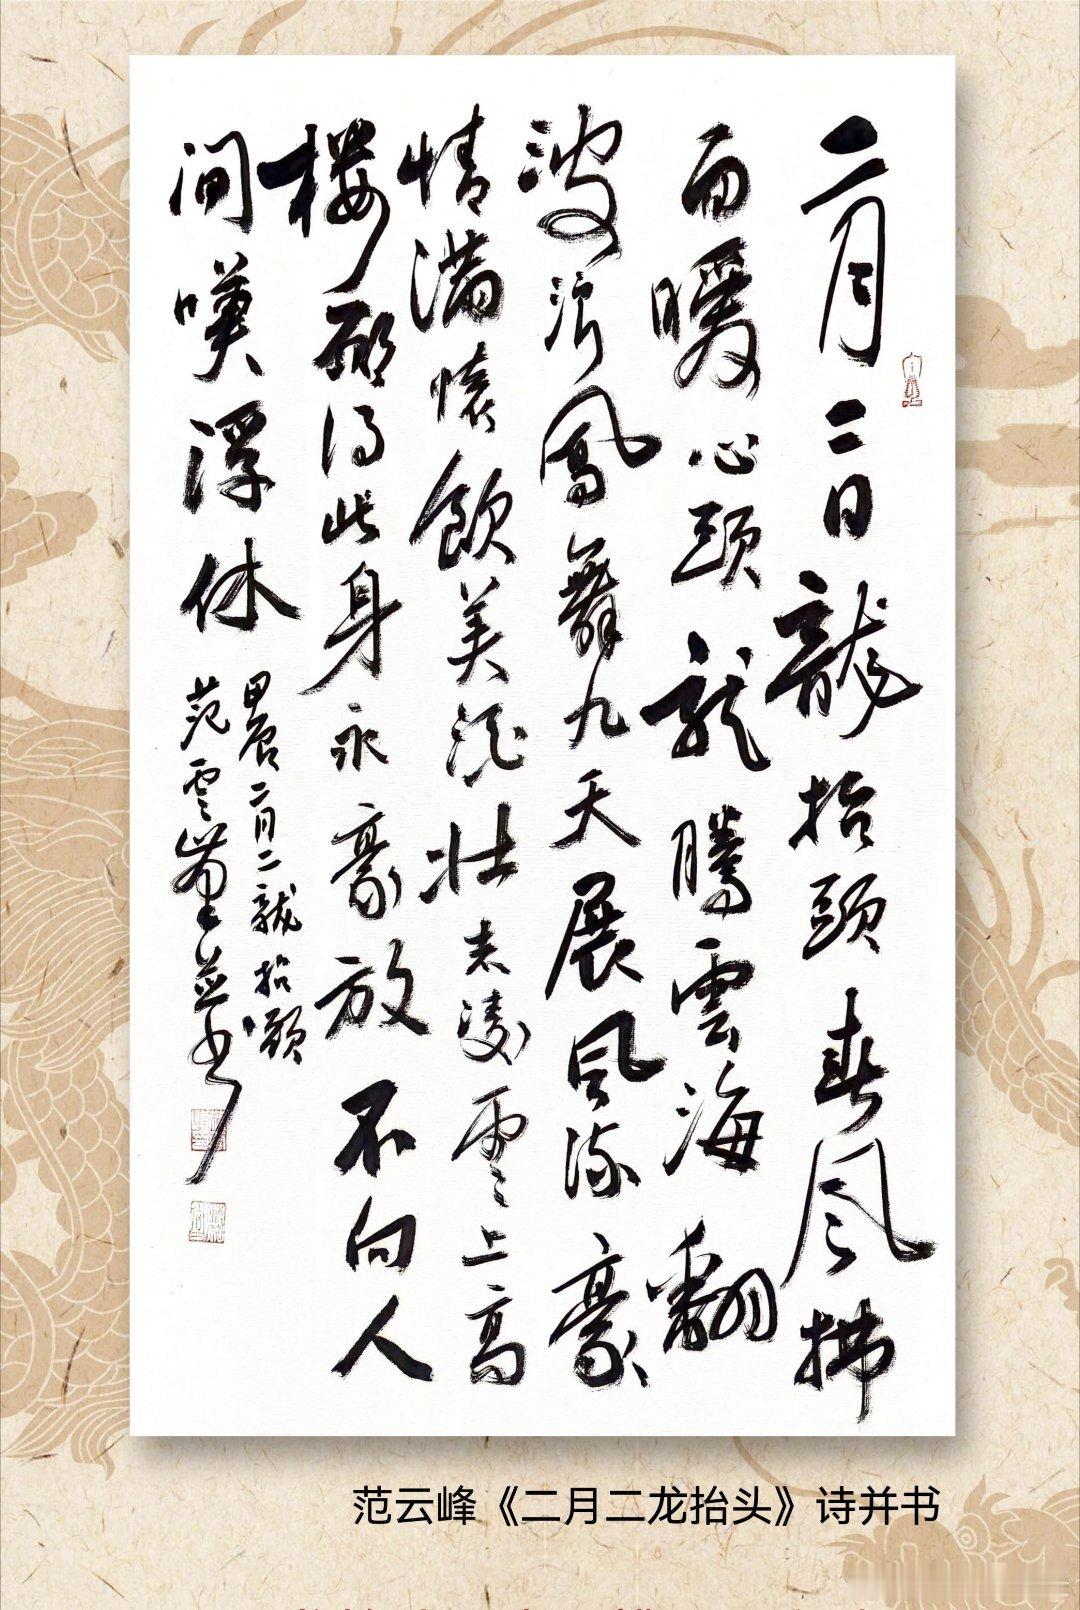 二月二日龍抬頭春風拂
面暖心頭龍騰雲海翻
波浪鳳舞九天展風流豪
情滿懷飲美酒壯志凌雲上高
樓願得此身永豪放不向人
间嘆浮休
甲辰二月二龍抬頭
范雲峰并书
范云峰《二月二龙抬头》诗并书